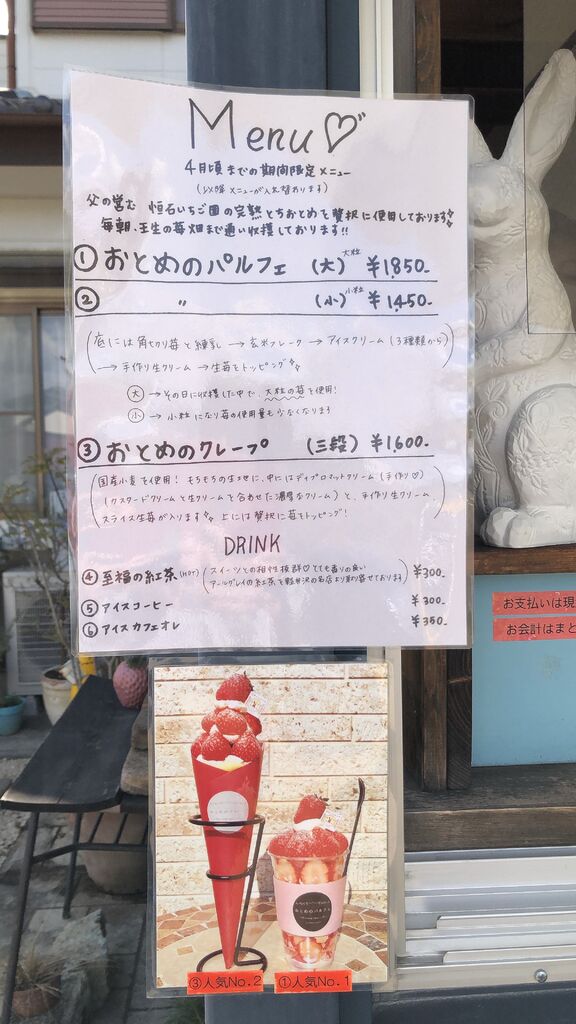 Menu♡
4月頃までの期間限定メニュー
(以降メニューが入れ替わります)
父の営む 恒石いちご園の完熟とちおとめを贅沢に使用しております
毎朝、壬生の苺畑まで通い収穫しております!!
① おとめのパルフェ (大) 大粒 ¥1,850-
② 〃 (小) 小粒 ¥1,450-
(底には角切り苺と練乳 → 玄米フレーク → アイスクリーム (3種類から)
→ 手作り生クリーム → 生苺をトッピング)
大 → その日に収穫した中で、大粒の苺を使用!
小 → 小粒になり苺の使用量も少なくなります
③ おとめのクレープ (三段) ¥1,600-
(国産小麦を使用! もちもちの生地に、中にはディプロマットクリーム (手作り♡)
(カスタードクリームと生クリームを合わせた濃厚なクリーム) と、手作り生クリーム、
スライス生苺が入ります 上には贅沢に苺をトッピング!)
DRINK
④ 至福の紅茶 (HOT) (スイーツとの相性抜群♡とても香りの良い
アールグレイの紅茶を軽井沢の名店より取り寄せております) ¥300-
⑤ アイスコーヒー ¥300-
⑥ アイスカフェオレ ¥350-
お支払いは現
お会計はまと
おとめのパルフェ
③人気No.2
①人気No.1